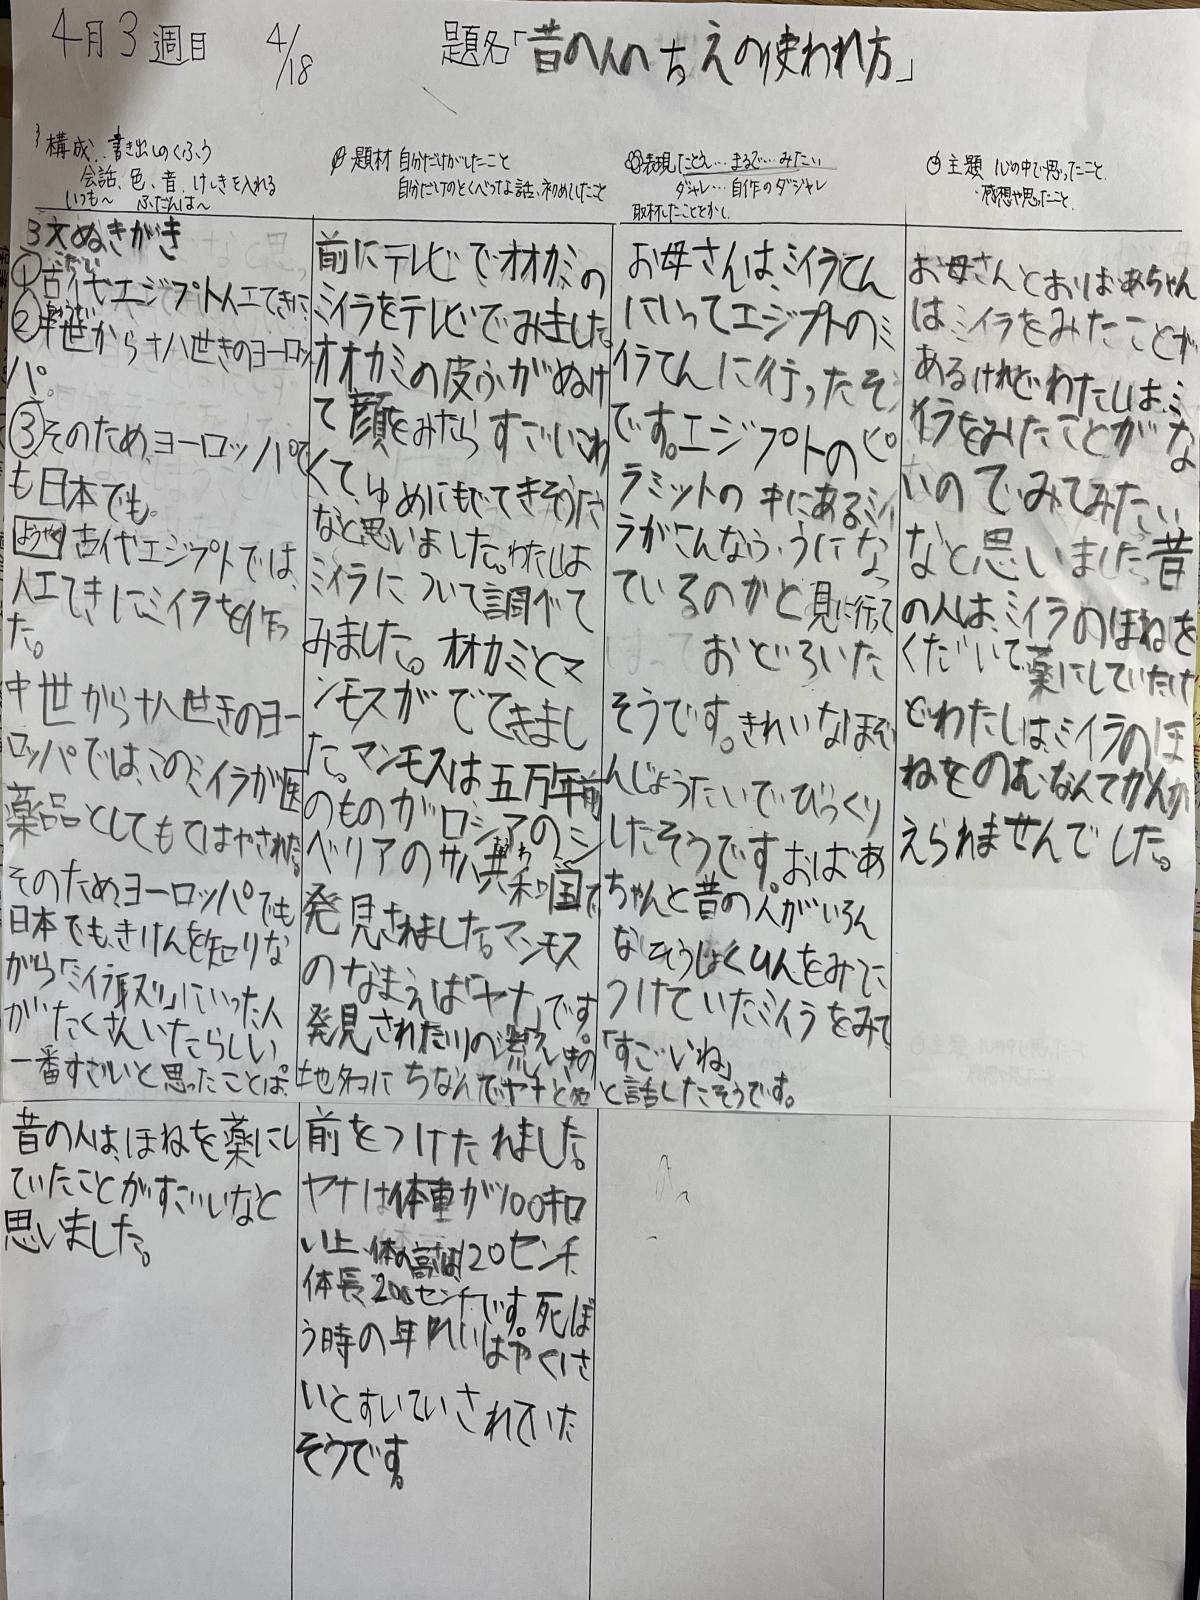 4月3週目 4/18 題名「昔の人のちえの使われ方」
構成 書き出しのくふう
会話、色、音、けしきを入れる
いつも〜 ふだんは〜
題材 自分だけがしたこと
自分だけのとくべつな話、初めてしたこと
表現 たとえ…まるで…みたい
ダジャレ…自作のダジャレ
取材したこととかし、
主題 心の中で思ったこと、
感想や思ったこと、
3文ぬきがき
①古代エジプト人工てきに、
②中世から十八世きのヨーロッ
パ。
③そのため、ヨーロッパで
も日本でも。
ようやく 古代エジプトでは、
人工てきにミイラを作っ
た。
中世から十八世きのヨー
ロッパでは、このミイラが医
薬品としてもてはやされた。
そのためヨーロッパでも
日本でも、きけんを知りな
がら「ミイラ取り」にいった人
がたくさんいたらしい
一番すごいと思ったことは、
昔の人は、ほねを薬にし
ていたことがすごいなと
思いました。
前にテレビでオオカミの
ミイラをテレビでみました。
オオカミの皮ふがぬけ
て顔をみたらすごいこわ
くて、ゆめにもでてきそうだ
なと思いました。わたしは
ミイラについて調べて
みました。オオカミとマ
ンモスがでてきまし
た。マンモスは五万年前
のものがロシアのシ
ベリアのサハ共和国で
発見されました。マンモス
のなまえは「ヤナ」です。
発見された川の流いきの
地名にちなんでヤナと名
前をつけられました。
ヤナは体重が100キロ
い上、体の高さは120センチ、
体長200センチです。死ぼ
う時の年れいは
いとすいていされていた
そうです。
お母さんは、ミイラてん
にいってエジプトのミ
イラてんに行ったそう
です。エジプトのピ
ラミットの中にあるミイ
ラがこんなふうになっ
ているのかと見に行って
おどろいた
そうです。きれいなほぞ
んじょうたいでびっくり
したそうです。おばあ
ちゃんと昔の人がいろん
なそうしょくひんをみに
つけていたミイラをみて
「すごいね」
と話したそうです。
お母さんとおばあちゃん
は、ミイラをみたことが
あるけれどわたしは、ミ
イラをみたことがな
いのでみてみたい
なと思いました。昔
の人は、ミイラのほねを
くだいて、薬にしていたけ
どわたしは、ミイラのほ
ねをのむなんてかんが
えられませんでした。